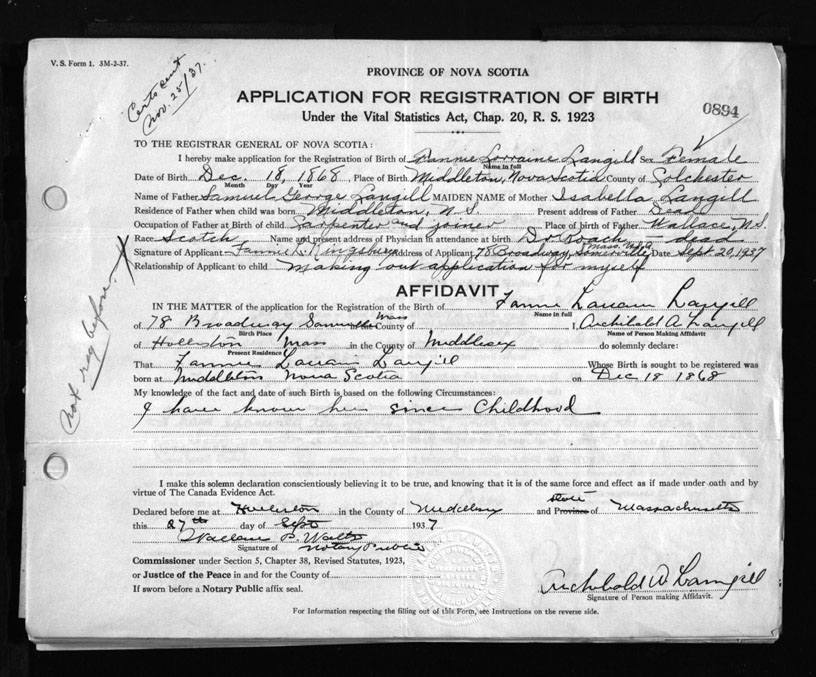 V. S. Form 1. 3M-2-37.
Certs sent
Nov. 25/37.
PROVINCE OF NOVA SCOTIA
APPLICATION FOR REGISTRATION OF BIRTH
0894
Under the Vital Statistics Act, Chap. 20, R. S. 1923
TO THE REGISTRAR GENERAL OF NOVA SCOTIA:
I hereby make application for the Registration of Birth of Fannie Lorraine Langill Sex Female
Name in full
Date of Birth Dec. 18, 1868, Place of Birth Middleton, Nova Scotia County of Colchester
Month Day Year
Name of Father Samuel George Langill MAIDEN NAME of Mother Isabella Langill
Residence of Father when child was born Middleton, N.S. Present address of Father Dead
Occupation of Father at Birth of child Carpenter and joiner Place of birth of Father Wallace, N.S.
Race Scotch Name and present address of Physician in attendance at birth Dr Roach dead
Signature of Applicant Fannie L. Kingsbury Address of Applicant 78 Broadway, Somerville Mass. Date Sept 20, 1937
Relationship of Applicant to child Making out application for myself
Not reg before.
AFFIDAVIT
IN THE MATTER of the application for the Registration of the Birth of Fannie Langill
Name in full
of 78 Broadway Mass in the County of I, Archibald A. Langill
Birth Place Name of Person Making Affidavit
of Holliston Mass in the County of Middlesex do solemnly declare:
Present Residence
That Fannie Langill Whose Birth is sought to be registered was
born at Middleton Nova Scotia on Dec 18 1868
My knowledge of the fact and date of such Birth is based on the following Circumstances:
I have know her since Childhood
I make this solemn declaration conscientiously believing it to be true, and knowing that it is of the same force and effect as if made under oath and by
virtue of The Canada Evidence Act.
Declared before me at Holliston in the County of Middlesex and Province of State Massachusetts
this 27th day of Sept 1937
Wallace P. Waltz
Signature of Notary Public
Commissioner under Section 5, Chapter 38, Revised Statutes, 1923,
or Justice of the Peace in and for the County of
If sworn before a Notary Public affix seal.
Archibald A. Langill
Signature of Person making Affidavit.
For Information respecting the filling out of this Form, see Instructions on the reverse side.